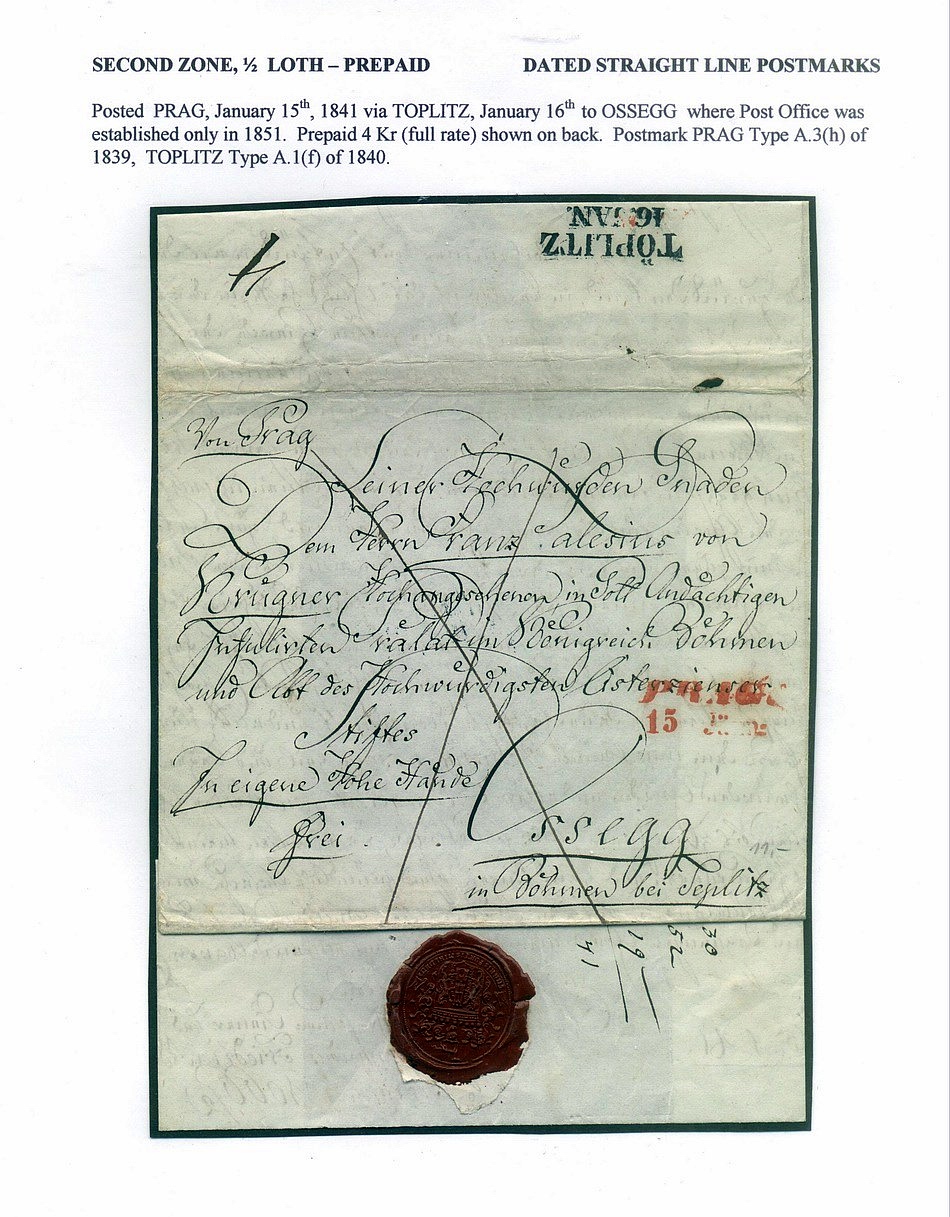 SECOND ZONE, ½ LOTH – PREPAID DATED STRAIGHT LINE POSTMARKS
Posted PRAG, January 15th, 1841 via TOPLITZ, January 16th to OSSEGG where Post Office was
established only in 1851. Prepaid 4 Kr (full rate) shown on back. Postmark PRAG Type A.3(h) of
1839, TOPLITZ Type A.1(f) of 1840.
TÖPLITZ
16. JAN.
4
Von Prag
Seiner Hochwürden Gnaden
Dem Herrn Franz Salesius von
Krügner Hochangesehenen in Gott Andächtigen
Infulirten Prälat im Königreich Böhmen
und Abt des Hochwürdigsten Cisterzienser
Stiftes
PRAG
15 JAN
In eigene Hohe Hände
Frei
Ossegg
11,–
in Böhmen bei Teplitz
30
52
19
41